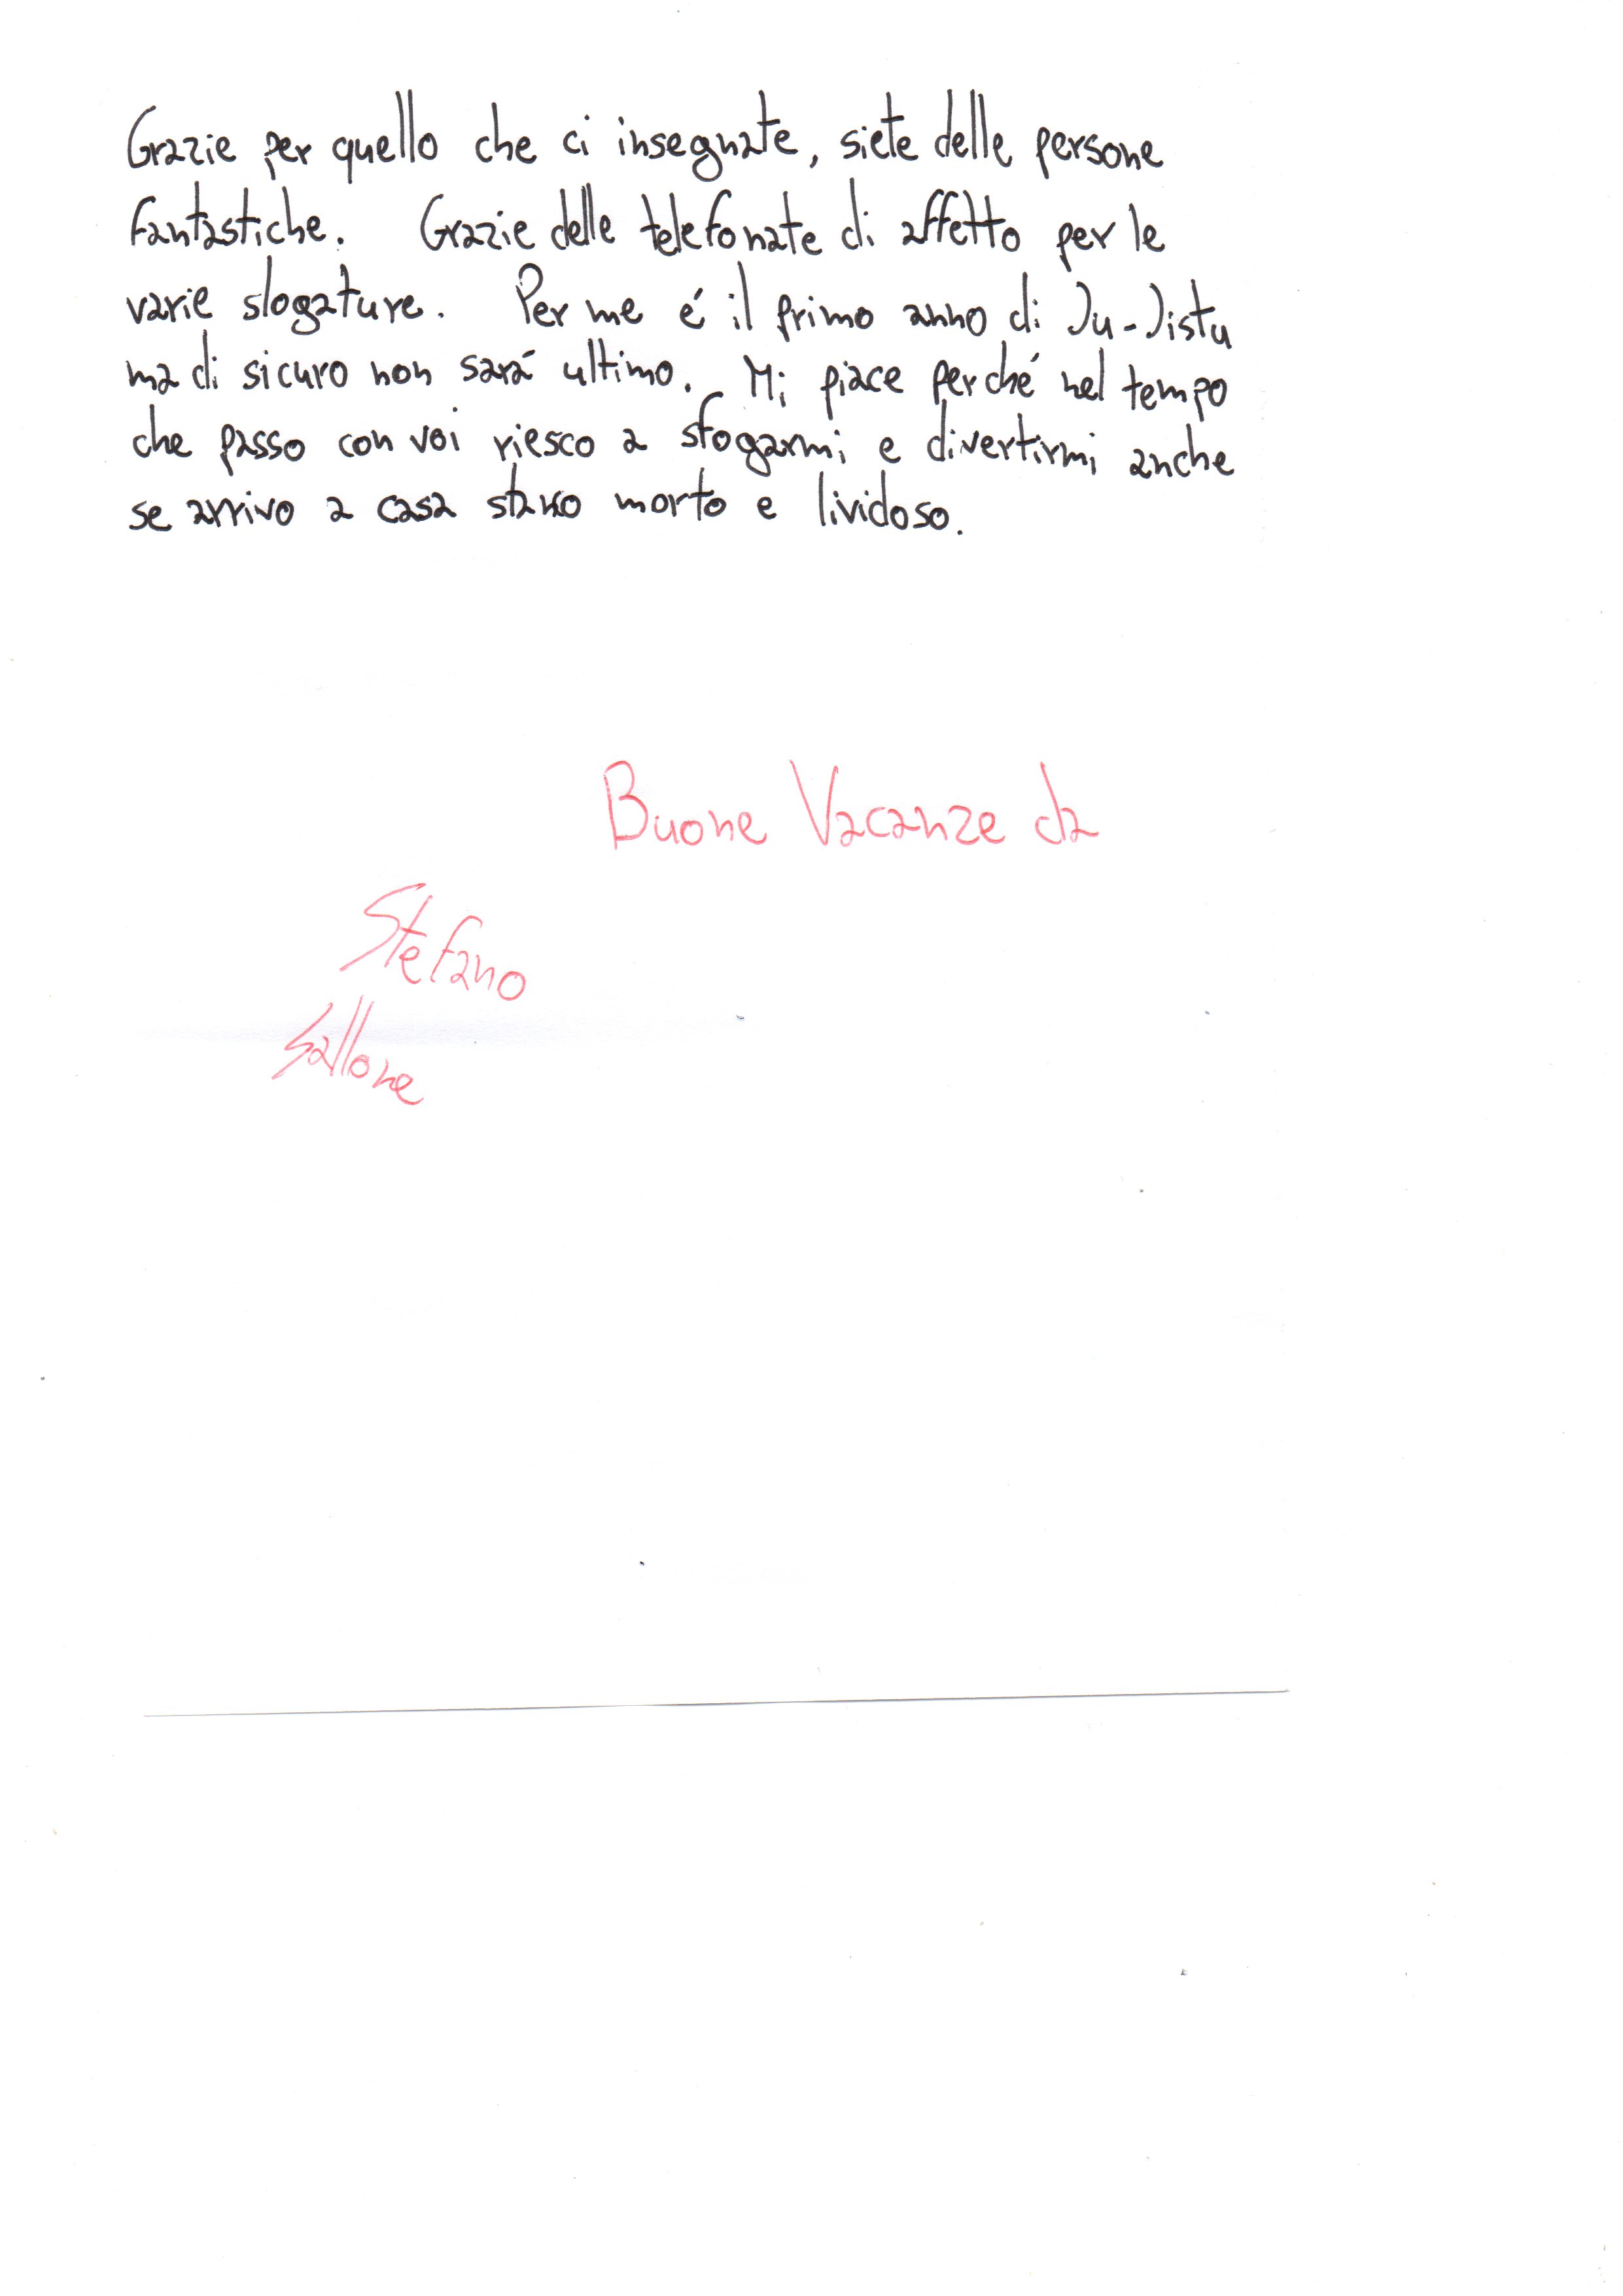 Grazie per quello che ci insegnate, siete delle persone
fantastiche. Grazie delle telefonate di affetto per le
varie slogature. Per me é il primo anno di Ju-Jistu
ma di sicuro non sará ultimo. Mi piace perché nel tempo
che passo con voi riesco a sfogarmi e divertirmi anche
se arrivo a casa morto e lividoso.
Buone Vacanze da
Stefano